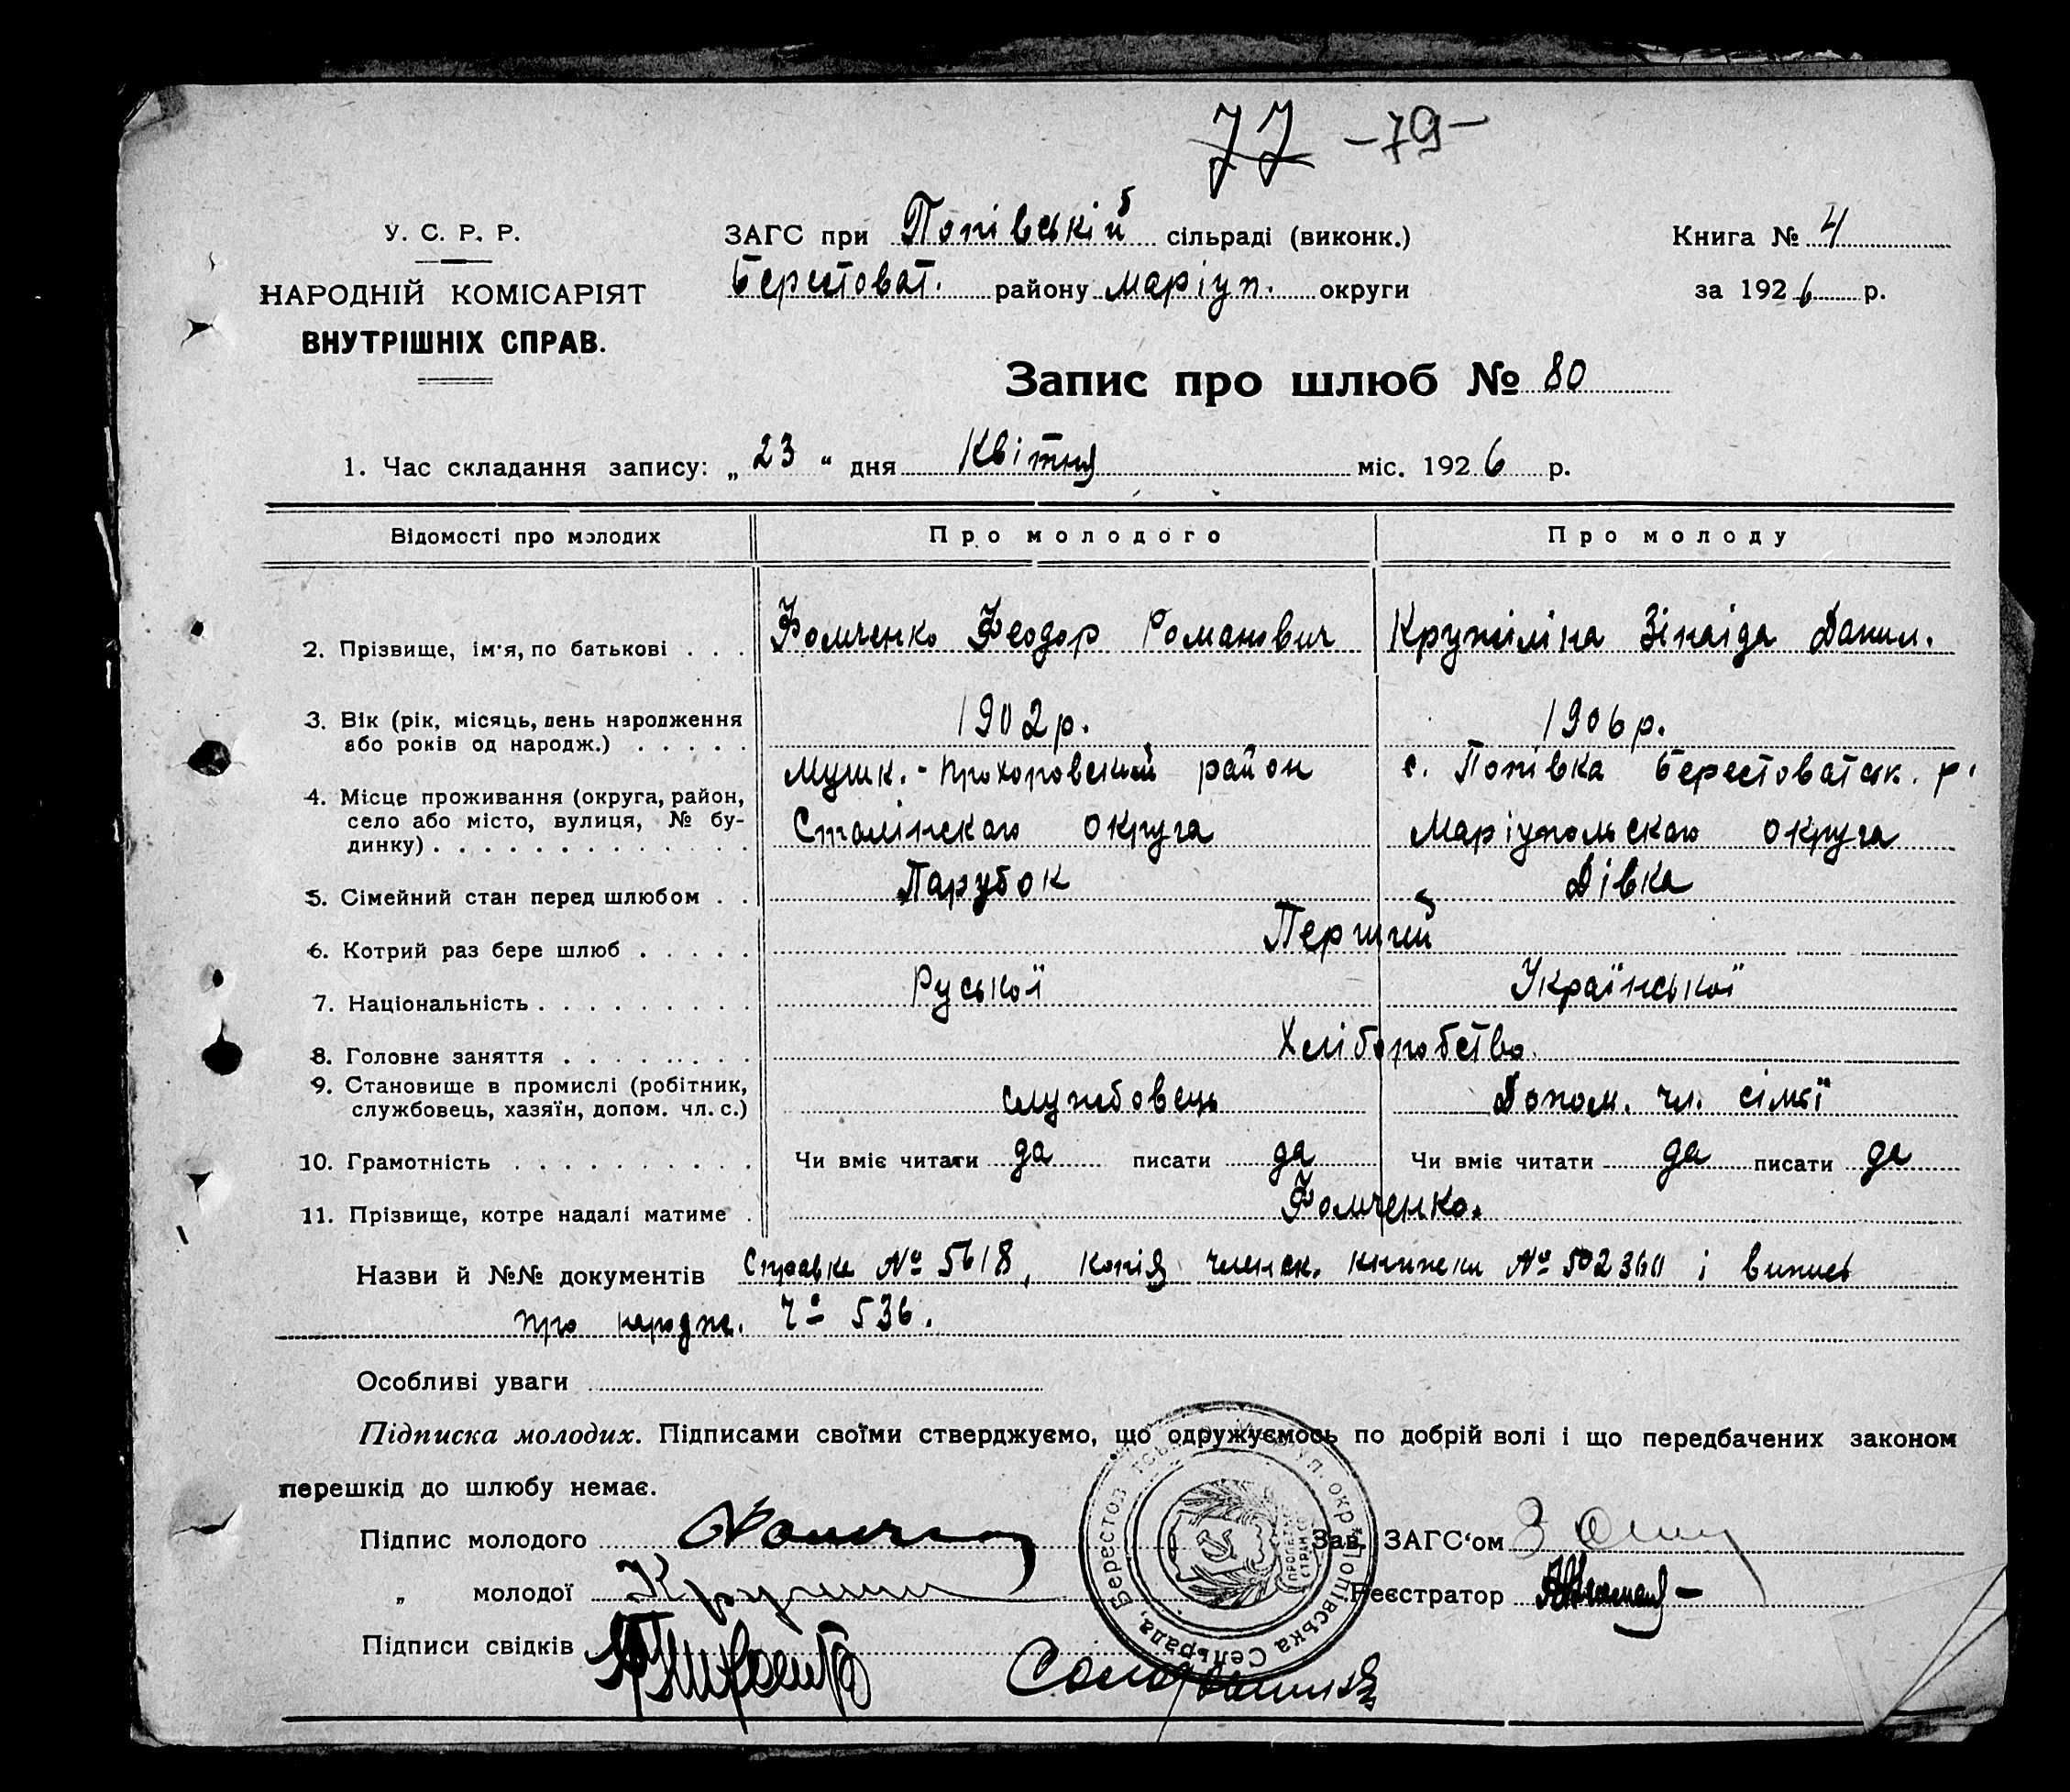 77 -79-
У. С. Р. Р.
НАРОДНІЙ КОМІСАРІЯТ
ВНУТРІШНІХ СПРАВ.
ЗАГС при Попівській сільраді (виконк.)
Берестоват. району Маріуп. округи
Книга № 4
за 1926 р.
Запис про шлюб № 80
1. Час складання запису: „23“ дня Квітня міс. 1926 р.
Відомості про молодих Про молодого Про молоду
2. Прізвище, ім'я, по батькові . . . Фомченко Феодор Романович Кружіліна Зінаіда Данил.
3. Вік (рік, місяць, день народження
або років од народж.) . . . . . 1902 р. 1906 р.
4. Місце проживання (округа, район,
село або місто, вулиця, № бу-
динку) . . . . . . . . . . . . .
Мушк.-Прохоровский район
Сталінскаго округа
с. Попівка Берестоватск. р.
Маріупольскаго округа
5. Сімейний стан перед шлюбом . . Парубок Дівка
6. Котрий раз бере шлюб . . . . . Перший
7. Національність . . . . . . . . . Руської Української
8. Головне заняття . . . . . . . . Хліборобство
9. Становище в промислі (робітник,
службовець, хазяїн, допом. чл. с.) службовець Допом. чл. сімї
10. Грамотність . . . . . . . . . . Чи вміє читати да писати да Чи вміє читати да писати да
11. Прізвище, котре надалі матиме . Фомченко.
Назви й №№ документів Справка № 5618, копія членск. книжки № 502360 і випись
про народж. Ч° 536.
Особливі уваги
Підписка молодих. Підписами своїми стверджуємо, що одружуємось по добрій волі і що передбачених законом
перешкід до шлюбу немає.
Підпис молодого Зав. ЗАГС'ом
„ молодої Реєстратор
Підписи свідків
Попівська Сельрада, Берестов